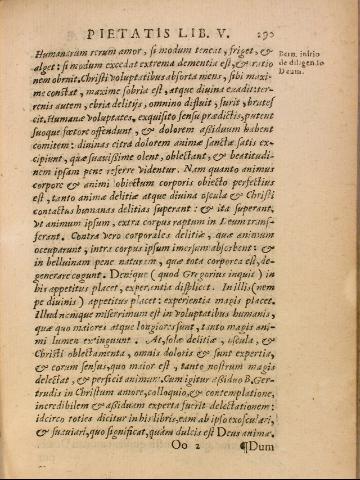 PIETATIS LIB. V. 290
Humanarum rerum amor, si modum teneat, friget, &
alget: si modum excedat extrema dementia est, & ratio
nem obruit. Christi voluptatibus absorta mens, sibi maxi-
me constat, maxime sobria est, atque divina
renis autem, ebria delitijs, omnino diffluit, furit,
cit. Humanæ voluptates, exquisito sensu prædictis, putent
suoque fœtore offendunt, & dolorem aßiduum habent
comitem: divinas citrà dolorem animæ sanctæ satis ex-
cipiunt, quæ suavissime olent, oblectant, & beatitudi-
nem ipsam pene referre videntur. Nam quanto animus
corpore & animi obiectum corporis obiecto perfectius
est, tanto animæ delitiæ atque divina oscula & Christi
contactus humanas delitias superant: & ita superant,
vt animum ipsum, extra corpus raptum in Deum trans-
ferant. Contra verò corporalea delitiæ, quæ animum
occuparunt, intra corpus ipsum imersum absorbent: &
in belluinam pene naturam, quæ tota corporea est, de-
generare cogunt. Denique (quod Gregorius inquit) in
his appetitus placet, experientia displicet. In illis (nem
pe divinis) appetitus placet: experientia magis placet.
Illud denique miserrimum est in voluptatibus humanis,
quæ quo maiores atque longiores sunt, tanto magis ani-
mi lumen extinguunt. At, solæ delitiæ, oscula, &
Christi oblectamenta, omnis doloris & sunt expertia,
& eorum sensus, quo maior est, tanto nostrum magis
delectat, & perficit animum. Cum igitur aßiduo B. Ger-
trudis in Christum amore, colloquio, & contemplatione,
incredibilem & aßiduam experta fuerit delectationem:
idcirco toties dicitur in his libris, eam ab ipso exosculari,
& suaviari, quo significat, quàm dulcis est Deus animæ.
Oo 2 ¶Dum
Bern. initio
de diligen. lo
Deum.